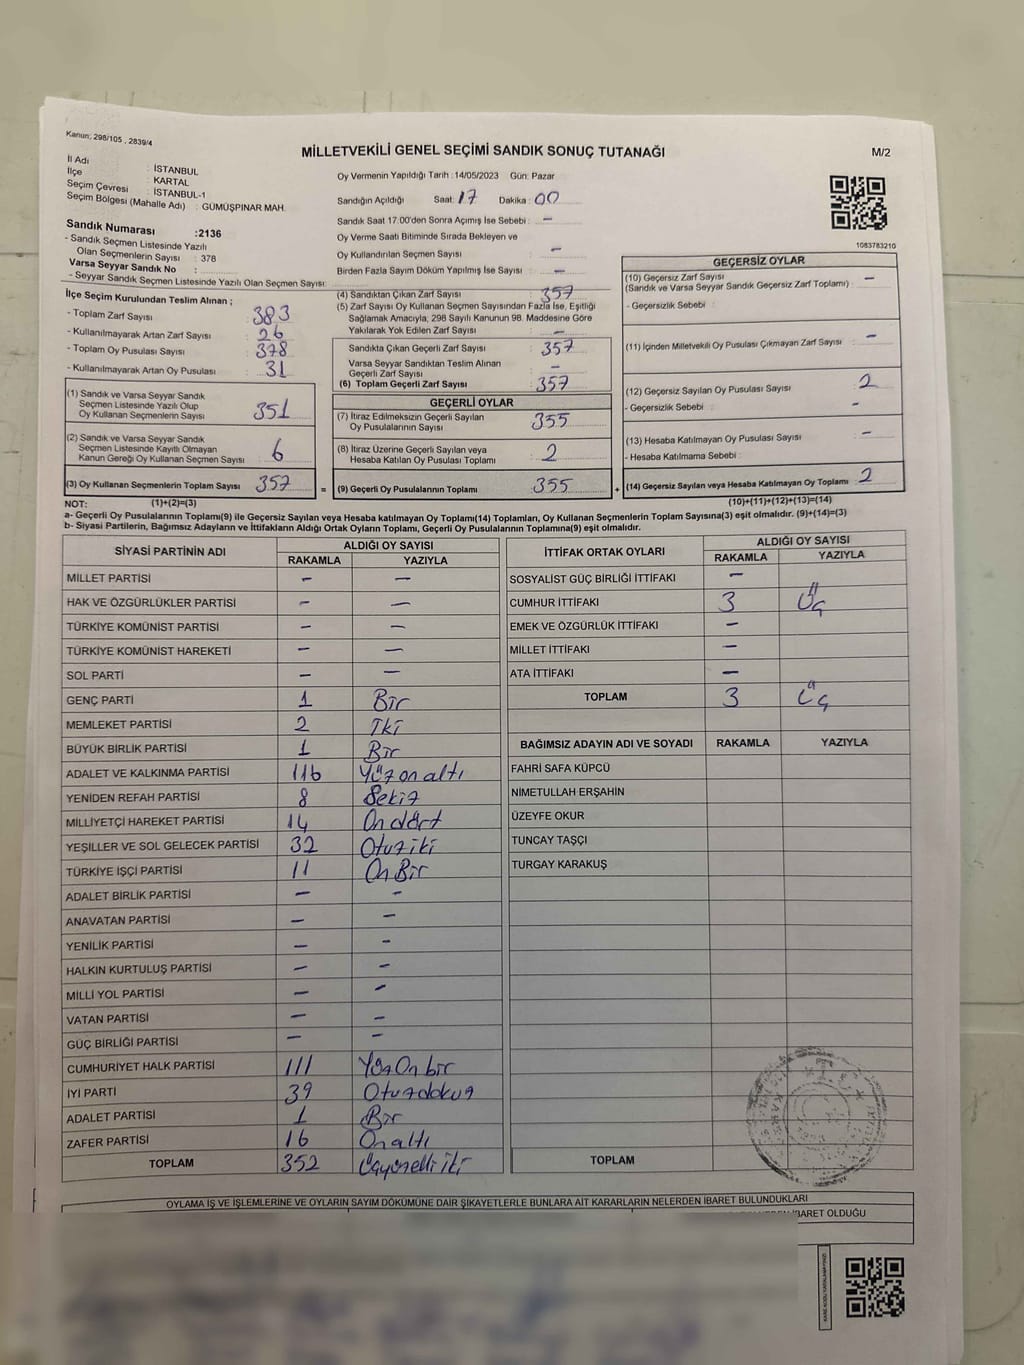 Kanun; 298/105 , 2839/4
MİLLETVEKİLİ GENEL SEÇİMİ SANDIK SONUÇ TUTANAĞI
M/2
İl Adı : İSTANBUL
İlçe : KARTAL
Seçim Çevresi : İSTANBUL-1
Seçim Bölgesi (Mahalle Adı) : GÜMÜŞPINAR MAH.
Sandık Numarası :2136
- Sandık Seçmen Listesinde Yazılı
Olan Seçmenlerin Sayısı : 378
Varsa Seyyar Sandık No :
- Seyyar Sandık Seçmen Listesinde Yazılı Olan Seçmen Sayısı:
Oy Vermenin Yapıldığı Tarih :14/05/2023 Gün: Pazar
Sandığın Açıldığı Saat: 17 Dakika : 00
Sandık Saat 17.00'den Sonra Açımış İse Sebebi : –
Oy Verme Saati Bitiminde Sırada Bekleyen ve
Oy Kullandırılan Seçmen Sayısı : –
Birden Fazla Sayım Döküm Yapılmış İse Sayısı : –
1083783210
İlçe Seçim Kurulundan Teslim Alınan ;
- Toplam Zarf Sayısı : 383
- Kullanılmayarak Artan Zarf Sayısı : 26
- Toplam Oy Pusulası Sayısı : 378
- Kullanılmayarak Artan Oy Pusulası : 31
(1) Sandık ve Varsa Seyyar Sandık
Seçmen Listesinde Yazılı Olup
Oy Kullanan Seçmenlerin Sayısı : 351
(2) Sandık ve Varsa Seyyar Sandık
Seçmen Listesinde Kayıtlı Olmayan
Kanun Gereği Oy Kullanan Seçmen Sayısı : 6
(3) Oy Kullanan Seçmenlerin Toplam Sayısı : 357
(4) Sandıktan Çıkan Zarf Sayısı : 357
(5) Zarf Sayısı Oy Kullanan Seçmen Sayısından Fazla İse, Eşitliği
Sağlamak Amacıyla, 298 Sayılı Kanunun 98. Maddesine Göre
Yakılarak Yok Edilen Zarf Sayısı : –
Sandıkta Çıkan Geçerli Zarf Sayısı : 357
Varsa Seyyar Sandıktan Teslim Alınan
Geçerli Zarf Sayısı : –
(6) Toplam Geçerli Zarf Sayısı : 357
GEÇERLİ OYLAR
(7) İtiraz Edilmeksizin Geçerli Sayılan
Oy Pusulalarının Sayısı : 355
(8) İtiraz Üzerine Geçerli Sayılan veya
Hesaba Katılan Oy Pusulası Toplamı : 2
= (9) Geçerli Oy Pusulalarının Toplamı : 355
GEÇERSİZ OYLAR
(10) Geçersiz Zarf Sayısı : –
(Sandık ve Varsa Seyyar Sandık Geçersiz Zarf Toplamı)
- Geçersizlik Sebebi :
(11) İçinden Milletvekili Oy Pusulası Çıkmayan Zarf Sayısı : –
(12) Geçersiz Sayılan Oy Pusulası Sayısı : 2
- Geçersizlik Sebebi : –
(13) Hesaba Katılmayan Oy Pusulası Sayısı : –
- Hesaba Katılmama Sebebi :
+ (14) Geçersiz Sayılan veya Hesaba Katılmayan Oy Toplamı : 2
NOT: (1)+(2)=(3)
(10)+(11)+(12)+(13)=(14)
a- Geçerli Oy Pusulalarının Toplamı(9) ile Geçersiz Sayılan veya Hesaba katılmayan Oy Toplamı(14) Toplamları, Oy Kullanan Seçmenlerin Toplam Sayısına(3) eşit olmalıdır. (9)+(14)=(3)
b- Siyasi Partilerin, Bağımsız Adayların ve İttifakların Aldığı Ortak Oyların Toplamı, Geçerli Oy Pusulalarının Toplamına(9) eşit olmalıdır.
SİYASİ PARTİNİN ADI ALDIĞI OY SAYISI
RAKAMLA YAZIYLA
MİLLET PARTİSİ – –
HAK VE ÖZGÜRLÜKLER PARTİSİ – –
TÜRKİYE KOMÜNİST PARTİSİ – –
TÜRKİYE KOMÜNİST HAREKETİ – –
SOL PARTİ – –
GENÇ PARTİ 1 Bir
MEMLEKET PARTİSİ 2 İki
BÜYÜK BİRLİK PARTİSİ 1 Bir
ADALET VE KALKINMA PARTİSİ 116 Yüz on altı
YENİDEN REFAH PARTİSİ 8 Sekiz
MİLLİYETÇİ HAREKET PARTİSİ 14 On dört
YEŞİLLER VE SOL GELECEK PARTİSİ 32 Otuz iki
TÜRKİYE İŞÇİ PARTİSİ 11 On Bir
ADALET BİRLİK PARTİSİ – –
ANAVATAN PARTİSİ – –
YENİLİK PARTİSİ – –
HALKIN KURTULUŞ PARTİSİ – –
MİLLİ YOL PARTİSİ – –
VATAN PARTİSİ – –
GÜÇ BİRLİĞİ PARTİSİ – –
CUMHURİYET HALK PARTİSİ 111 Yüz On bir
İYİ PARTİ 39 Otuz dokuz
ADALET PARTİSİ 1 Bir
ZAFER PARTİSİ 16 On altı
TOPLAM 352 Üçyüzelli iki
İTTİFAK ORTAK OYLARI ALDIĞI OY SAYISI
RAKAMLA YAZIYLA
SOSYALİST GÜÇ BİRLİĞİ İTTİFAKI –
CUMHUR İTTİFAKI 3 Üç
EMEK VE ÖZGÜRLÜK İTTİFAKI –
MİLLET İTTİFAKI –
ATA İTTİFAKI –
TOPLAM 3 Üç
BAĞIMSIZ ADAYIN ADI VE SOYADI RAKAMLA YAZIYLA
FAHRİ SAFA KÜPCÜ
NİMETULLAH ERŞAHİN
ÜZEYFE OKUR
TUNCAY TAŞÇI
TURGAY KARAKUŞ
TOPLAM
OYLAMA İŞ VE İŞLEMLERİNE VE OYLARIN SAYIM DÖKÜMÜNE DAİR ŞİKAYETLERLE BUNLARA AİT KARARLARIN NELERDEN İBARET BULUNDUKLARI
İBARET OLDUĞU